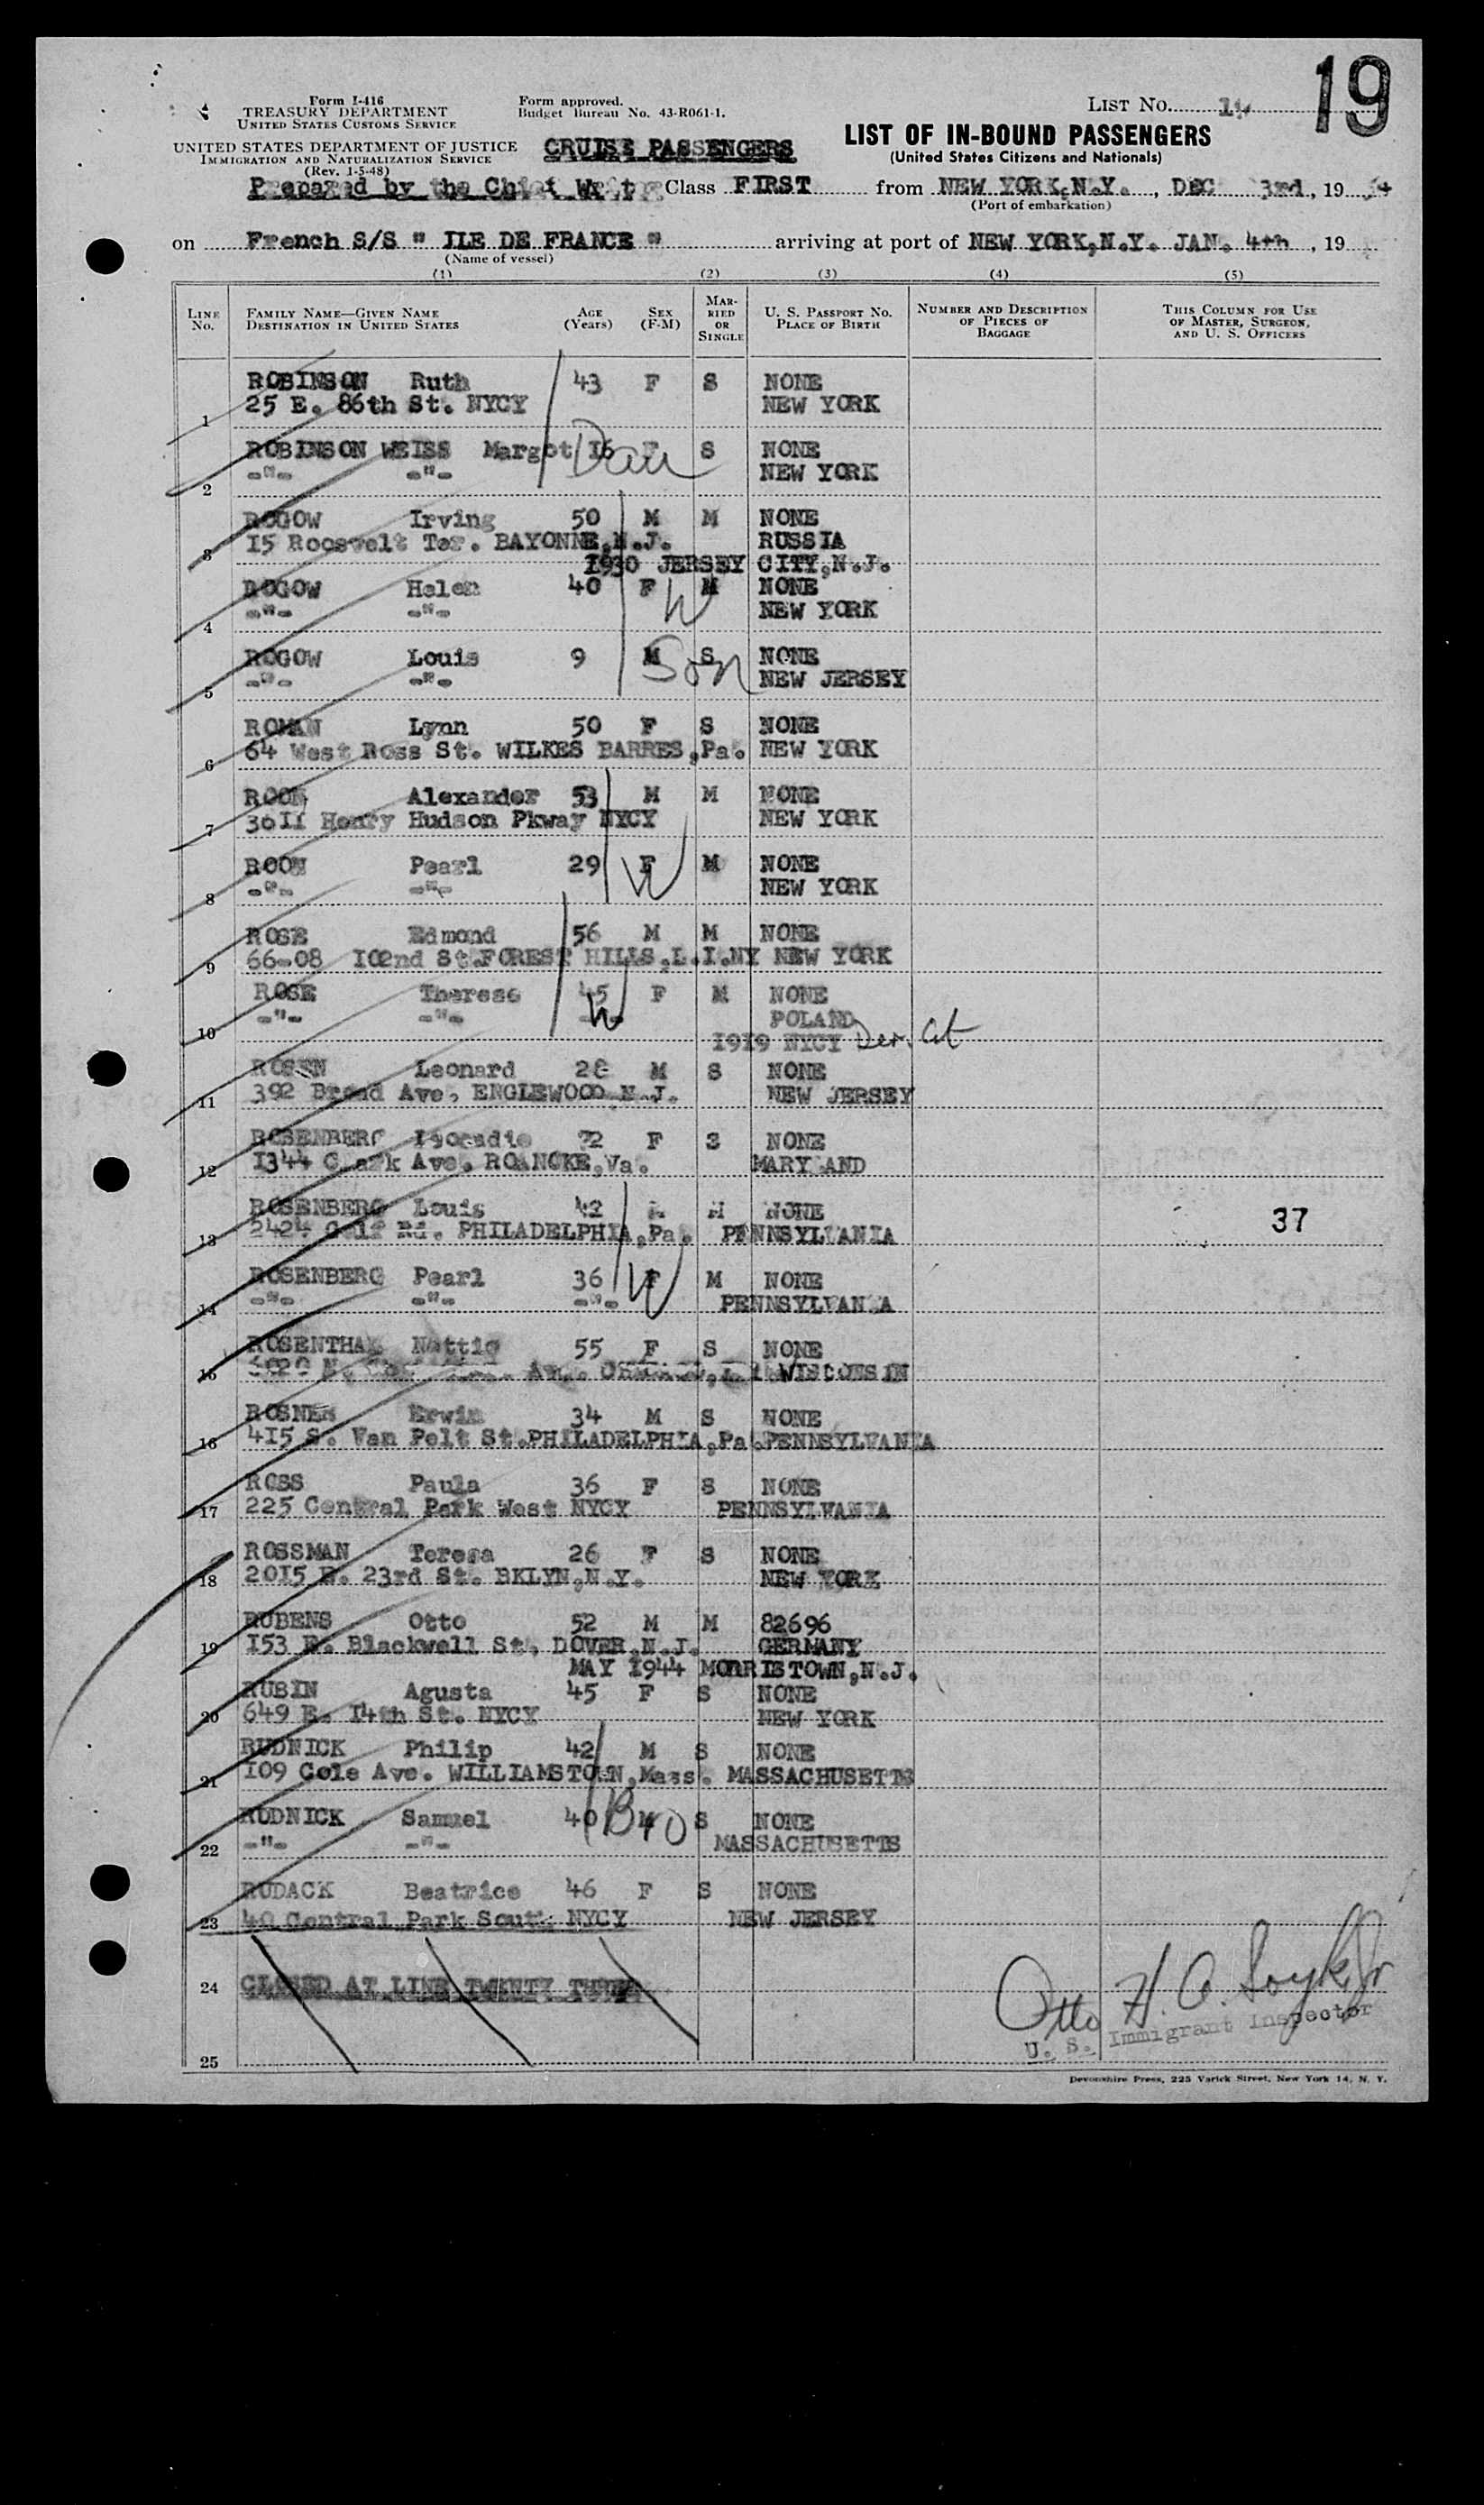 19
Form I-416
TREASURY DEPARTMENT
UNITED STATES CUSTOMS SERVICE
UNITED STATES DEPARTMENT OF JUSTICE
IMMIGRATION AND NATURALIZATION SERVICE
(Rev. 1-5-48)
Form approved.
Budget Bureau No. 43-R061-1.
CRUISE PASSENGERS
LIST No.
LIST OF IN-BOUND PASSENGERS
(United States Citizens and Nationals)
Prepared by the Chief Class FIRST from NEW YORK,N.Y., DEC 3rd, 19
(Port of embarkation)
on French S/S " ILE DE FRANCE " arriving at port of NEW YORK,N.Y. JAN. 4th, 19
(Name of vessel)
(1) (2) (3) (4) (5)
LINE No. FAMILY NAME—GIVEN NAME DESTINATION IN UNITED STATES AGE (Years) SEX (F-M) MARRIED OR SINGLE U. S. PASSPORT NO. PLACE OF BIRTH NUMBER AND DESCRIPTION OF PIECES OF BAGGAGE THIS COLUMN FOR USE OF MASTER, SURGEON, AND U. S. OFFICERS
ROBINSON Ruth 43 F S NONE
1 25 E. 86th St. NYCY NEW YORK
ROBINSON WEISS Margot 16 F S NONE
2 -"- -"- Dau NEW YORK
ROGOW Irving 50 M M NONE
3 15 Roosevelt Ter. BAYONNE,N.J. RUSSIA
1930 JERSEY CITY,N.J.
ROGOW Helen 40 F W M NONE
4 -"- -"- NEW YORK
ROGOW Louis 9 M Son S NONE
5 -"- -"- NEW JERSEY
ROMAN Lynn 50 F S NONE
6 64 West Ross St. WILKES BARRES,Pa. NEW YORK
ROON Alexander 53 M M NONE
7 3011 Henry Hudson Pkway NYCY NEW YORK
ROON Pearl 29 F W M NONE
8 -"- -"- NEW YORK
ROSE Edmond 56 M M NONE
9 66-08 102nd St.FOREST HILLS,L.I.NY NEW YORK
ROSE Therese 45 W F M NONE
10 -"- -"- POLAND
1919 NYCY Der. Cit
ROSEN Leonard M S NONE
11 392 Broad Ave, ENGLEWOOD N.J. NEW JERSEY
ROSENBERG F S NONE
12 1344 Ave. ROANOKE,Va. MARYLAND
ROSENBERG Louis 42 M M NONE
13 Rd. PHILADELPHIA,Pa. PENNSYLVANIA
37
ROSENBERG Pearl 36 F W M NONE
14 -"- -"- -"- PENNSYLVANIA
ROSENTHAL Nettie 55 F S NONE
15 WISCONSIN
ROSNER Erwin 34 M S NONE
16 415 S. Van Pelt St.PHILADELPHIA,Pa.PENNSYLVANIA
ROSS Paula 36 F S NONE
17 225 Central Park West NYCY PENNSYLVANIA
ROSSMAN Teresa 26 F S NONE
18 2015 E. 23rd St. BKLYN,N.Y. NEW YORK
RUBENS Otto 52 M M 82696
19 153 E. Blackwell St, DOVER,N.J. GERMANY
MAY 1944 MORRISTOWN,N.J.
RUBIN Agusta 45 F S NONE
20 649 E. 14th St. NYCY NEW YORK
RUDNICK Philip 42 M S NONE
21 109 Cole Ave. WILLIAMSTOWN,Mass. MASSACHUSETTS
RUDNICK Samuel 40 M Bro S NONE
22 -"- -"- MASSACHUSETTS
RUDACK Beatrice 46 F S NONE
23 40 Central Park South NYCY NEW JERSEY
24 CLOSED AT LINE TWENTY THREE
Otto H. O.
U. S. Immigrant Inspector
25
Devonshire Press, 225 Varick Street, New York 14, N. Y.